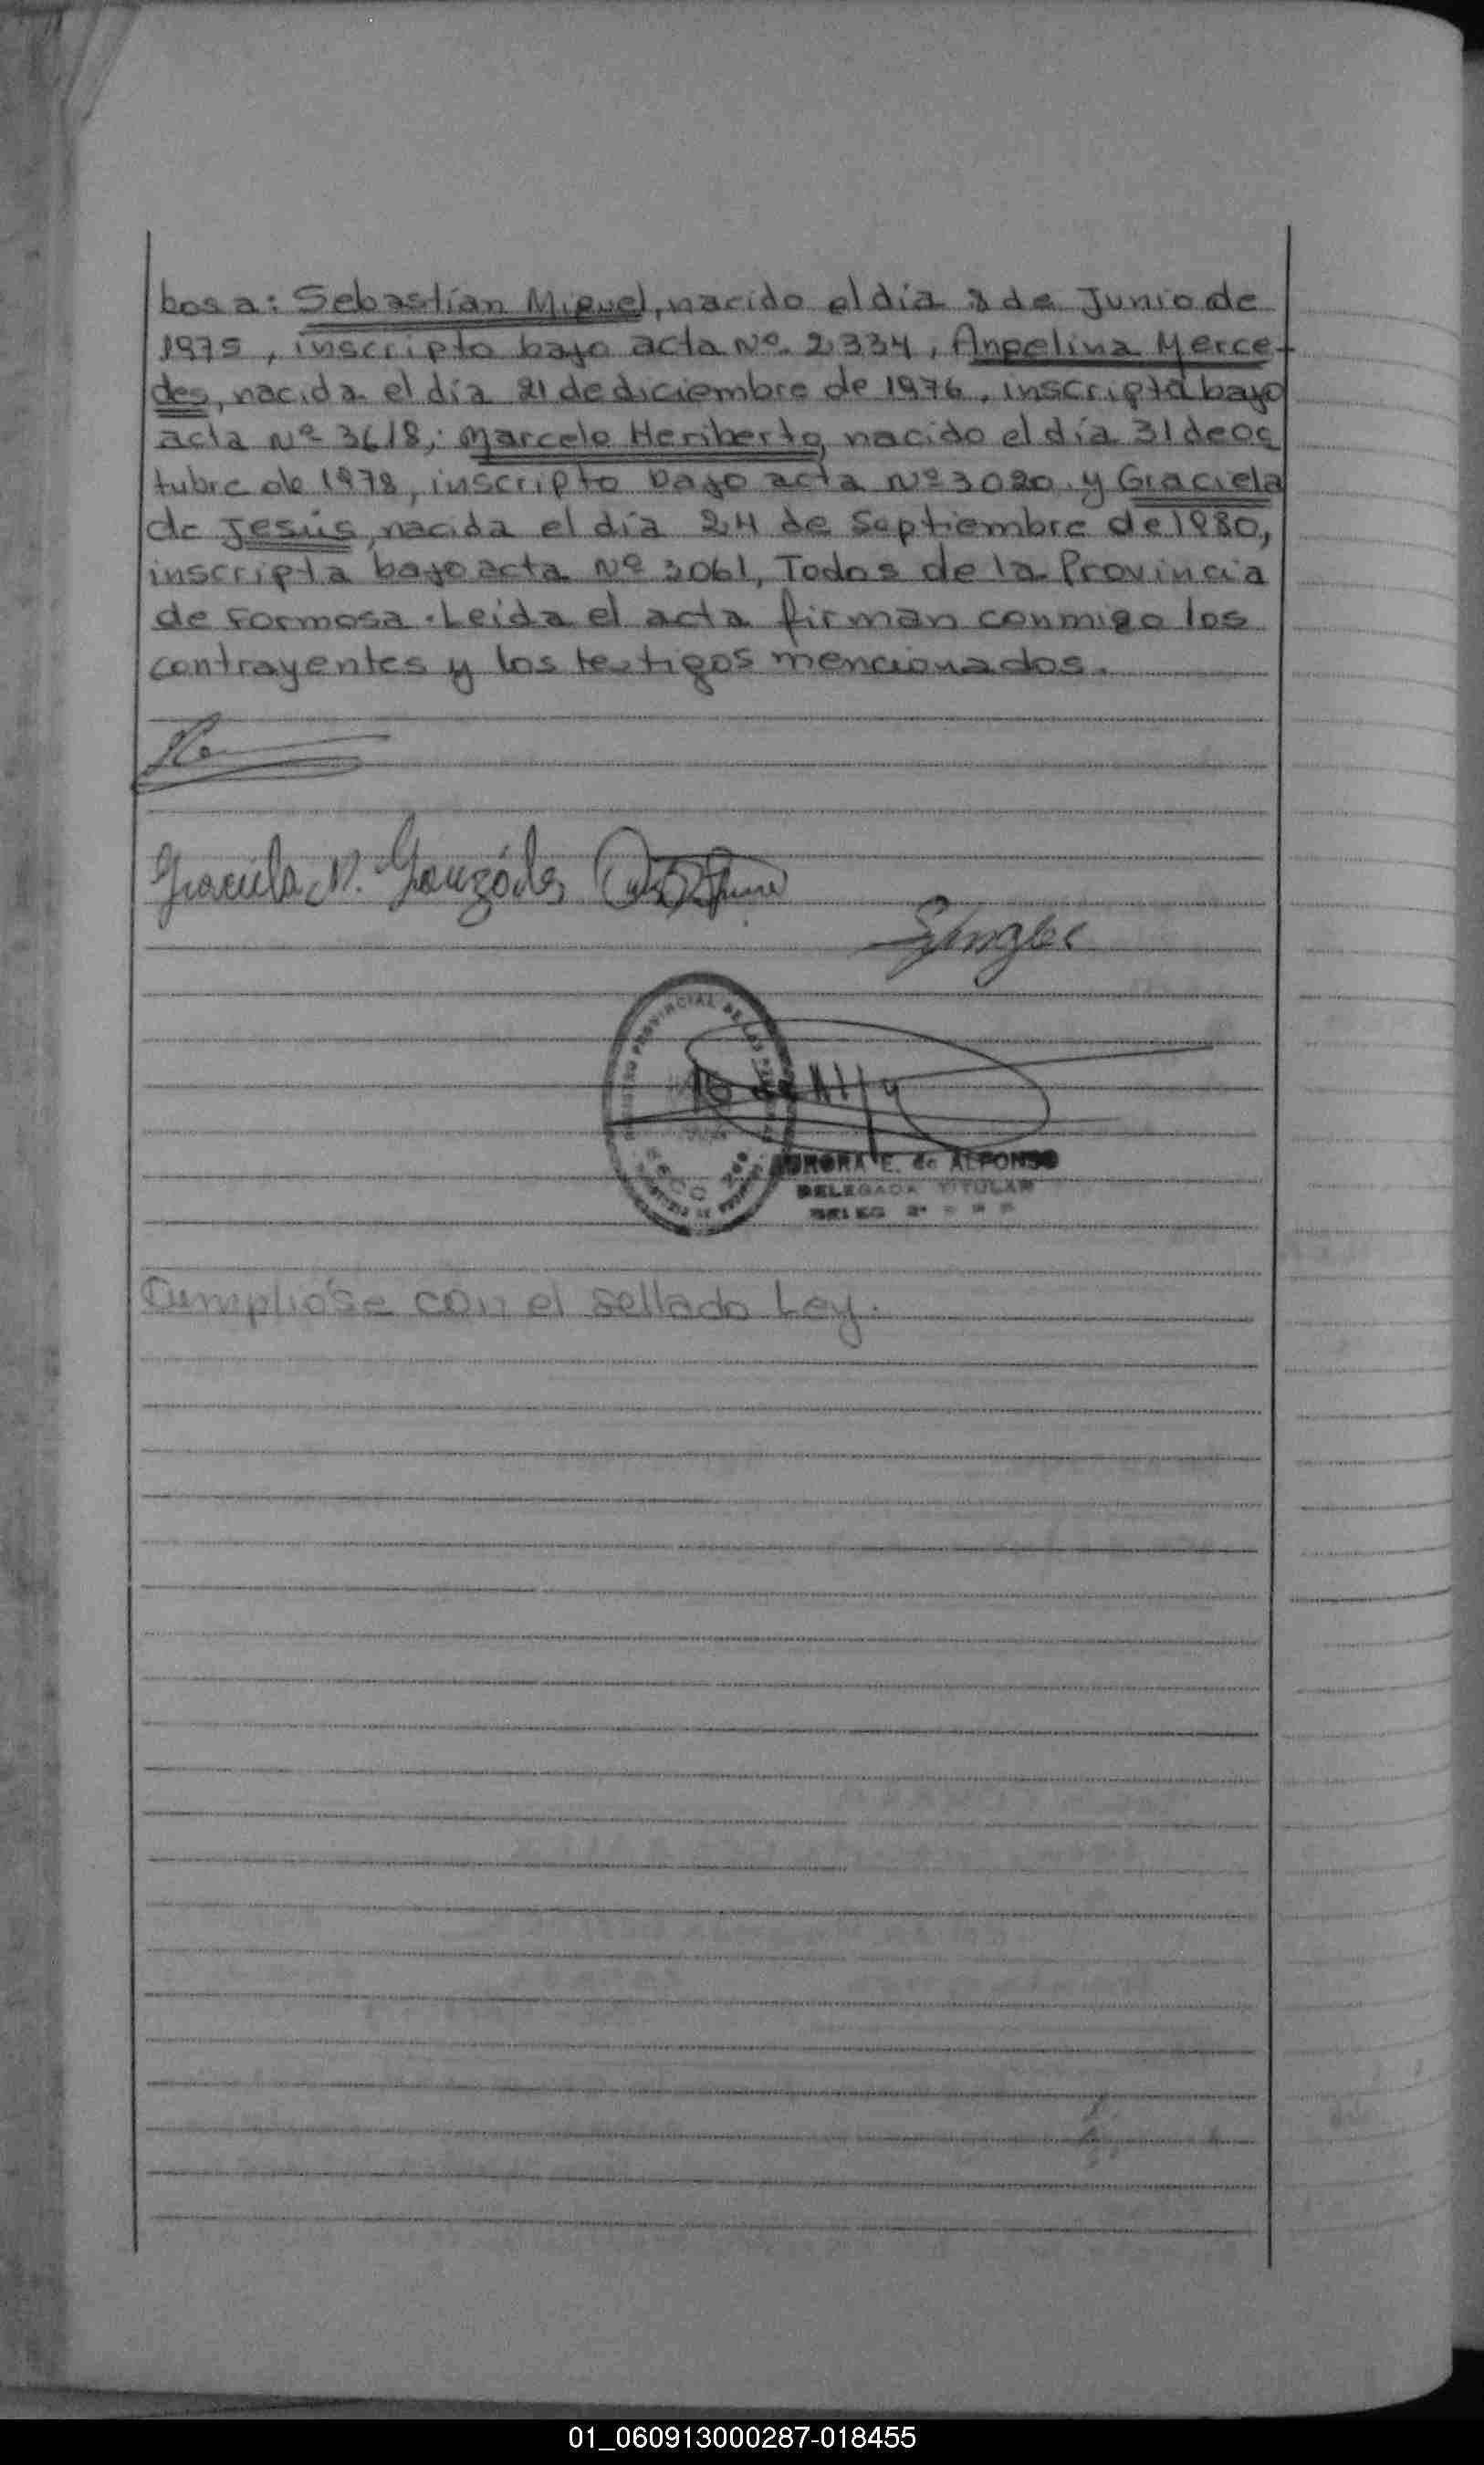 bos a: Sebastían Miguel, nacido el día 8 de Junio de
1975, inscripto bajo acta Nº 2334, Angelina Merce-
des, nacida el día 21 de diciembre de 1976, inscripta bajo
acta Nº 3618; Marcelo Heriberto, nacido el día 31 de oc
tubre de 1978, inscripto bajo acta Nº 3020 y Graciela
de Jesús, nacida el día 24 de Septiembre de 1980,
inscripta bajo acta Nº 3061, Todos de la Provincia
de Formosa. Leída el acta firman conmigo los
contrayentes y los testigos mencionados.
Graciela N. González
REGISTRO PROVINCIAL DE LAS PERSONAS
AURORA E. de ALFONSO
DELEGADA TITULAR
DELEG
Cumplióse con el sellado Ley.
01_060913000287-018455